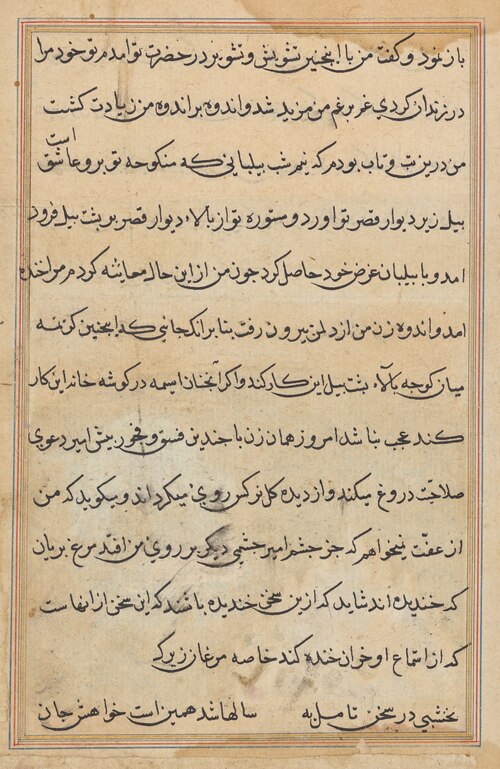 باز نمود و گفت من با اینچنین تشویش و تشویر در حضرت تو آمدم تو خود مرا
در زندان کردی غم بر غم من مزید شد و اندوه بر اندوه من زیادت کشت
من درین تب و تاب بودم که نیم شب بیلبانی که منکوحه تو برو عاشق است
بیل زیر دیوار قصر تو آورد و مستوره تو از بالاء دیوار قصر بر بشت بیل فرود
امد و با بیلبان غرض خود حاصل کرد جون من از این حال معاینه کردم مرا خنده
امد و اندوه زن من از دل من بیرون رفت بنا بر انک جائی که اینچنین
میان کوجه بالاء بشت بیل این کار کند و اکر آنچنان اسمه در کوشه خانه این کار
کند عجب نباشد امروز همان زن با جندین فسق و فجور بیش امیر دعوی
صلاحیت دروغ میکند و از دیده کل نرکس روی میکرداند و میکوید که من
از عفت نمیخواهم که جز جشم امیر جشمی دیکر بر روی من افتد مرغ بریان
که خندیده اند شاید که ازین سخن خندیده باشند که این سخن از انهاست
که از استماع او خوان خنده کند خاصه مرغان زیرک
نخشبی در سخن تامل به سالها شد همین است خواهش جان